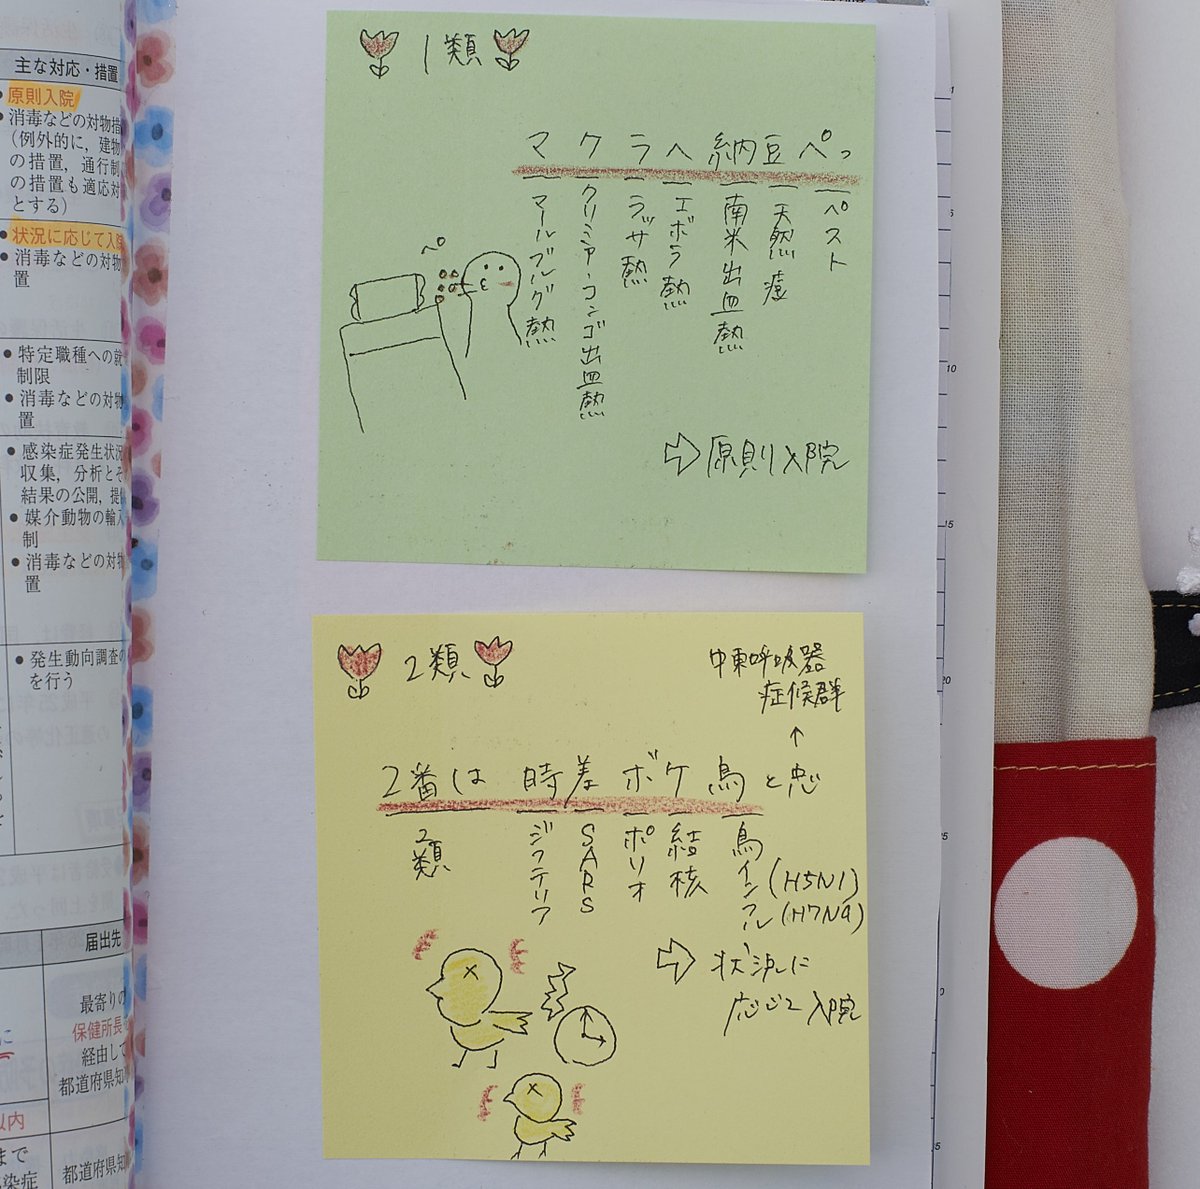 主な対応・措置
原則入院
消毒などの対物措
(例外的に, 建物
の措置, 通行制
の措置も適応対
とする)
状況に応じて入院
消毒などの対物
置
特定職種への就
制限
消毒などの対物
置
感染症発生状況
収集, 分析とそ
結果の公開, 提
媒介動物の輸入
制
消毒などの対物
置
発生動向調査の
を行う
届出先
最寄りの
保健所長
経由して
都道府県知
以内
まで
都道府県知
染症
1類
マクラへ納豆ペっ
マールブルグ熱
クリミア・コンゴ出血熱
ラッサ熱
エボラ熱
南米出血熱
天然痘
ペスト
ペ
⇨原則入院
2類
中東呼吸器
症候群
↑
2番は時差ボケ鳥と
2類
ジフテリア
SARS
ポリオ
結核
鳥インフル(H5N1)
(H7N9)
⇨状況に
応じて入院